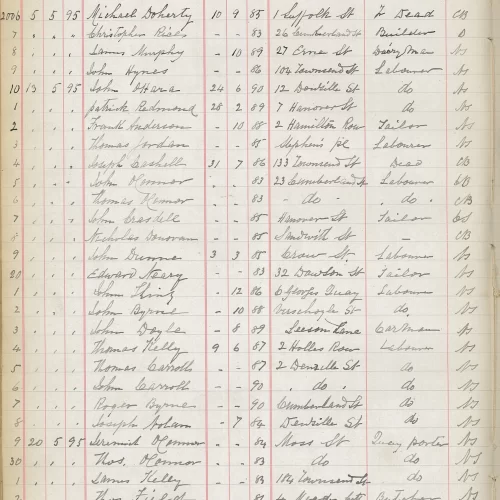 2006 5 5 95 Michael Doherty 10 9 85 1 Suffolk St F Dead CB
7 " " " Christopher 83 26 Cumberland St Builder D
8 " " " James Murphy - 10 89 27 Erne St Dairyman NS
9 " " " John Hynes - - 86 104 Townsend St Labourer NS
10 13 5 95 John O'Hara 24 6 90 12 Denzille St do NS
1 " " " Patrick Redmond 28 2 89 7 Hanover St do NS
2 " " " Frank Anderson - 10 88 2 Hamilton Row Tailor NS
3 " " " Thomas Jordan - - 85 Stephens Pl Labourer NS
4 " " " Joseph Cashell 31 7 86 133 Townsend St Dead CB
5 " " " John O'Connor - - 83 23 Cumberland St Labourer CB
6 " " " Thomas - - 83 - do - do CB
7 " " " John - - 85 Hanover St Tailor
8 " " " Nicholas Donovan - - 85 Sandwith St - CB
9 " " " John Dunne 3 3 85 Crow St Labourer NS
20 " " " Edward Neary - - 83 32 Dawson St Tailor NS
1 " " " John King - 12 86 6 Georges Quay Labourer NS
2 " " " John Byrne - 10 88 Verschoyle St do NS
3 " " " John Doyle - 8 89 Leeson Lane Carman NS
4 " " " Thomas Kelly 9 6 87 2 Holles Row Labourer NS
5 " " " Thomas Carroll - - 87 2 Denzille St do NS
6 " " " John Carroll - - 90 " do " do NS
7 " " " Roger Byrne - - 90 Cumberland St do NS
8 " " " Joseph Nolan - 7 84 Denzille St do NS
9 20 5 95 Jeremiah O'Connor - - 84 Moss St Quay Porter NS
30 " " " Thos. O'Connor - - 83 do do NS
1 " " " James Kelly - - 83 184 Townsend St do NS
2 " " " Thos